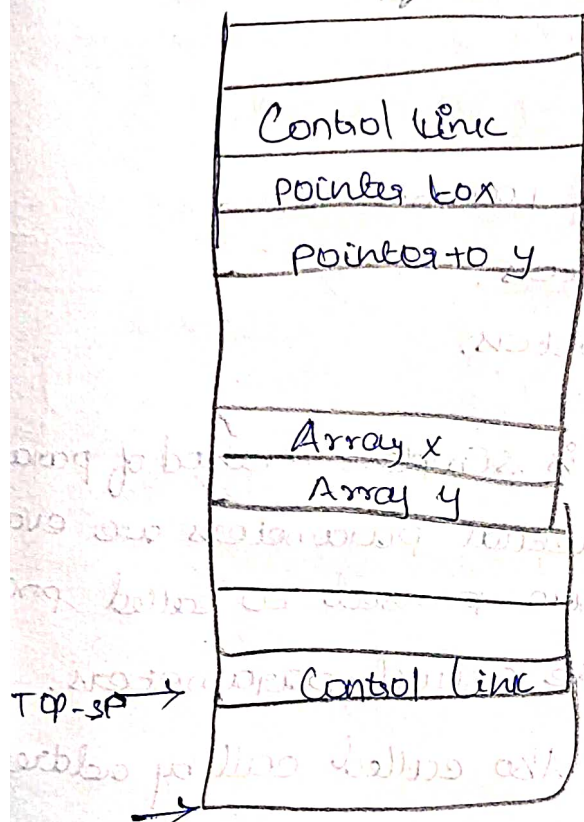 Control Link
pointer to x
pointer to y
Array x
Array y
Control Link
TOP-SP